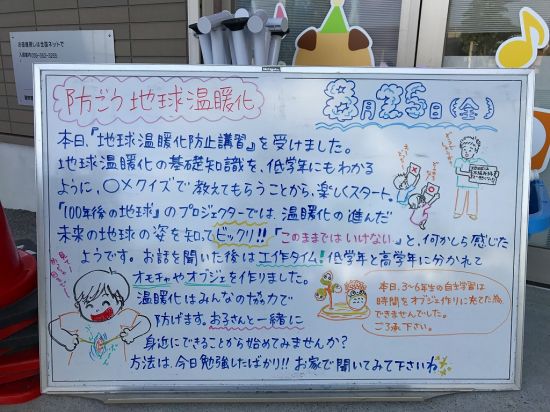 防ごう地球温暖化
8月25日(金)
本日、『地球温暖化防止講習』を受けました。
地球温暖化の基礎知識を、低学年にもわかる
ように、〇×クイズで教えてもらうことから、楽しくスタート。
『100年後の地球』のプロジェクターでは、温暖化の進んだ
未来の地球の姿を知ってビックリ!!『このままではいけない』と、何かしら感じた
ようです。お話を聞いた後は工作タイム!低学年と高学年に分かれて
オモチャやオブジェを作りました。
温暖化はみんなの協力で
防げます。お子さんと一緒に
身近にできることから始めてみませんか?
方法は、今日勉強したばかり!!お家で聞いてみて下さいね
本日、3〜6年生の自主学習は
時間をオブジェ作りに充てた為
できませんでした。
ご了承下さい。